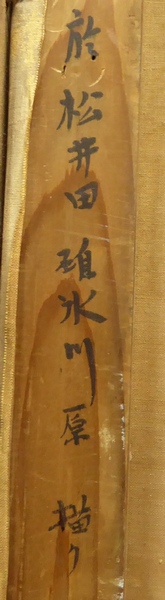 於松井田碓氷川原描ク